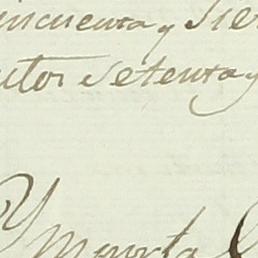 incuenta y Sie
utos setenta y
Ymporta